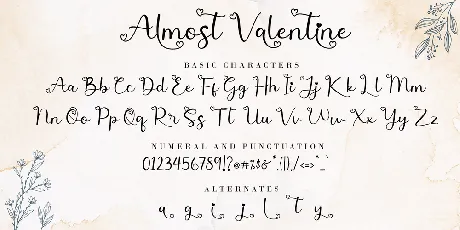 Almost Valentine
BASIC CHARACTERS
Aa Bb Cc Dd Ee Ff Gg Hh Ii Jj Kk Ll Mm
Nn Oo Pp Qq Rr Ss Tt Uu Vv Ww Xx Yy Zz
NUMERAL AND PUNCTUATION
0123456789!?
ALTERNATES
a g i j l t y